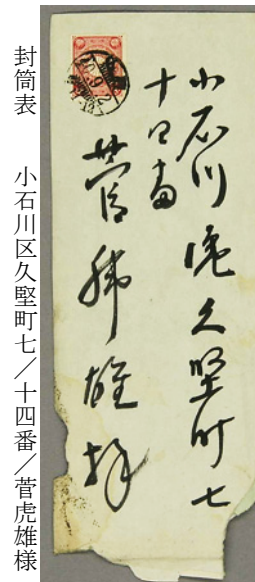 小石川区久堅町七
十四番
菅虎雄様
封筒表　小石川区久堅町七／十四番／菅虎雄様